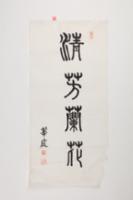 清芳蘭花